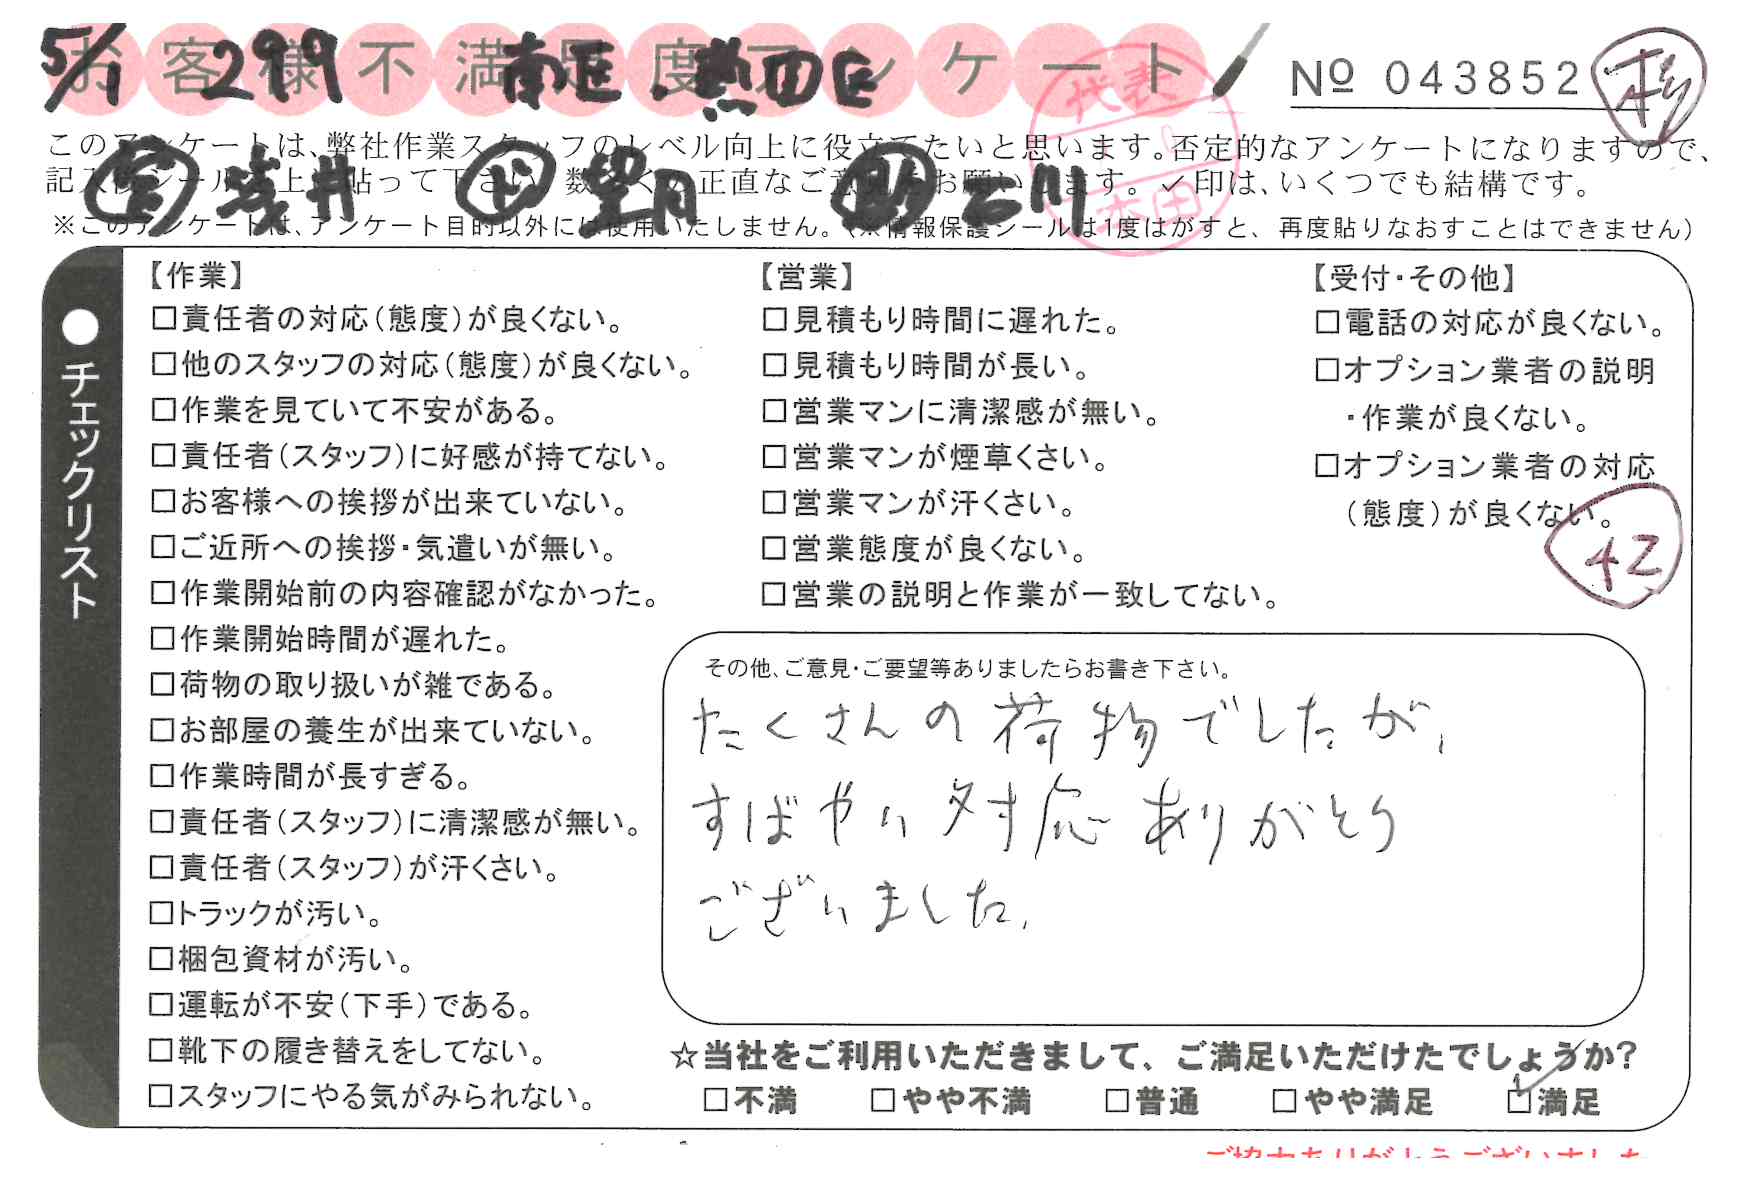 お客様不満足度アンケート
5/1 299 南区.熱田区
№ 043852
杉
代表
本田
このアンケートは、弊社作業スタッフのレベル向上に役立てたいと思います。否定的なアンケートになりますので、
記入後シールを上に貼って下さい。数多くの正直なご意見をお願いします。✓印は、いくつでも結構です。
浅井 ド 望月 助
※このアンケートは、アンケート目的以外には使用いたしません。(※情報保護シールは1度はがすと、再度貼りなおすことはできません)
●チェックリスト
【作業】
□責任者の対応(態度)が良くない。
□他のスタッフの対応(態度)が良くない。
□作業を見ていて不安がある。
□責任者(スタッフ)に好感が持てない。
□お客様への挨拶が出来ていない。
□ご近所への挨拶・気遣いが無い。
□作業開始前の内容確認がなかった。
□作業開始時間が遅れた。
□荷物の取り扱いが雑である。
□お部屋の養生が出来ていない。
□作業時間が長すぎる。
□責任者(スタッフ)に清潔感が無い。
□責任者(スタッフ)が汗くさい。
□トラックが汚い。
□梱包資材が汚い。
□運転が不安(下手)である。
□靴下の履き替えをしてない。
□スタッフにやる気がみられない。
【営業】
□見積もり時間に遅れた。
□見積もり時間が長い。
□営業マンに清潔感が無い。
□営業マンが煙草くさい。
□営業マンが汗くさい。
□営業態度が良くない。
□営業の説明と作業が一致してない。
【受付・その他】
□電話の対応が良くない。
□オプション業者の説明
・作業が良くない。
□オプション業者の対応
(態度)が良くない。
42
その他、ご意見・ご要望等ありましたらお書き下さい。
たくさんの荷物でしたが、
すばやい対応ありがとう
ございました。
☆当社をご利用いただきまして、ご満足いただけたでしょうか?
□不満 □やや不満 □普通 □やや満足 ☑満足
ご協力ありがとうございました